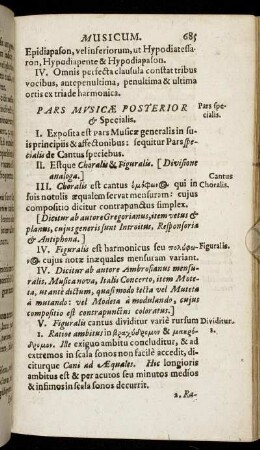 MUSICUM. 685
Epidiapason, vel inferiorum, ut Hypodiatessa-
ron, Hypodiapente & Hypodiapason.
IV. Omnis perfecta clausula constat tribus
vocibus, antepenultima, penultima & ultima
ortis ex triade harmonica.
PARS MVSICÆ POSTERIOR
& Specialis.
Pars spe-
cialis.
I. Exposita est pars Musicæ generalis in su-
is principiis & affectionibus: sequitur Pars spe-
cialis de Cantus speciebus.
II. Estque Choralis & Figuralis. [Divisione
analoga.]
Cantus
Choralis.
III. Choralis est cantus qui in
suis notulis æqualem servat mensuram: cujus
compositio dicitur contrapunctus simplex.
[Dicitur ab autore Gregorianus, item vetus &
planus, cujus generis sunt Introitus, Responsoria
& Antiphona.]
IV. Figuralis est harmonicus seu
Figuralis.
cujus notæ inæquales mensuram variant.
IV. Dicitur ab autore Ambrosianus mensu-
ralis, Musica nova, Italis Concerto, item Mote-
ta, ut ante dictum, quasi modo tecta vel Muteta
à mutando: vel Modeta à modulando, cujus
compositio est contrapunctus coloratus.]
V. Figuralis cantus dividitur variè rursum
Dividitur.
1. Ratione ambitus in βραχύδρομον & μακρό-
1.
δρομον. Ille exiguo ambitu concluditur, & ad
extremos in scala sonos non facilè accedit, di-
citurque Cani ad Æquales. Hic longioris
ambitus est & per acutos seu minutos medios
& infimos in scala sonos decurrit.
2. Ra-